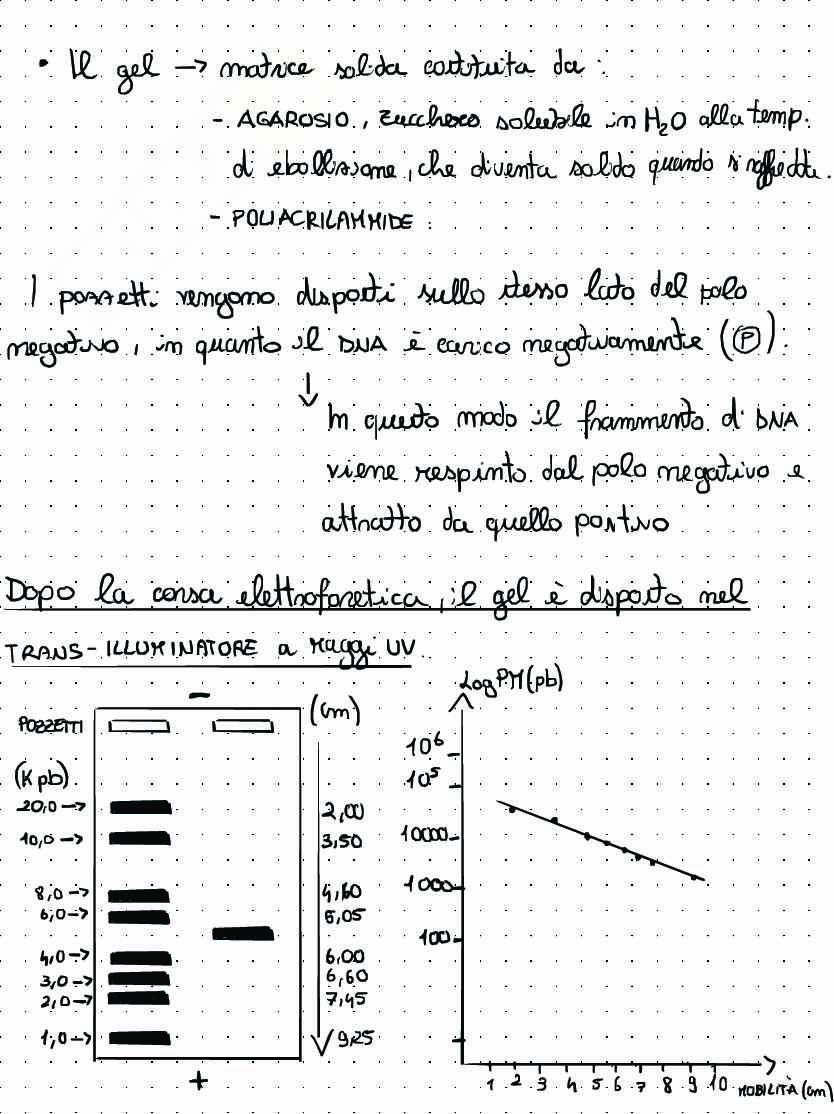 • Il gel → matrice solida costituita da :
- AGAROSIO, zucchero solubile in H₂O alla temp.
di ebollizione, che diventa solido quando si raffredda.
- POLIACRILAMMIDE.
I pozzetti vengono disposti sullo stesso lato del polo
negativo, in quanto il DNA è carico negativamente (P).
↓
In questo modo il frammento di DNA
viene respinto dal polo negativo e
attratto da quello positivo
Dopo la corsa elettroforetica, il gel è disposto nel
TRANS-ILLUMINATORE a raggi UV
-
POZZETTI
(cm)
(Kpb)
20,0 → 2,00
10,0 → 3,50
8,0 → 4,60
6,0 → 5,05
4,0 → 6,00
3,0 → 6,60
2,0 → 7,45
1,0 → 9,25
+
Log PM (pb)
10⁶
10⁵
10000
1000
100
1 2 3 4 5 6 7 8 9 10 MOBILITÀ (cm)